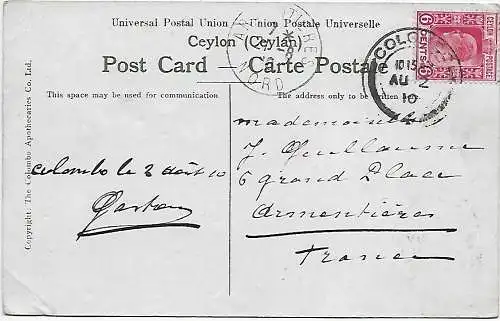 Universal Postal Union — Union Postale Universelle
Ceylon (Ceylan)
Post Card — Carte Postale
This space may be used for communication.
The address only to be written
Copyright. The Colombo Apothecaries Co. Ltd.
Colombo le 2 août 10
Gaston
mademoiselle
J. Guillaume
6 grand Place
Armentières
France
NORD
COLOMBO
10 15
AU 2
10
CEYLON POSTAGE
6 CENTS 6